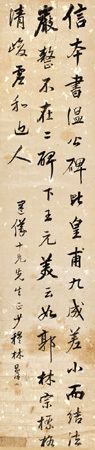 信本書溫公碑比皇甫九成差小而結法
嚴整不在二碑下王元美云如郭林宗標格
清峻虛和近人
星儕十兄先生正 少穆林則徐